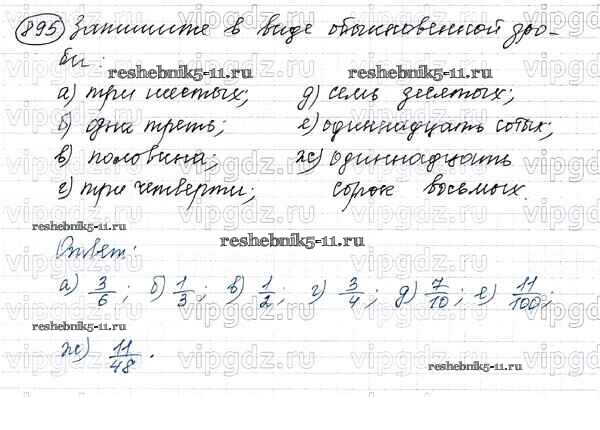 895) Запишите в виде обыкновенной дро-
би:
reshebnik5-11.ru
а) три шестых; д) семь десятых;
б) одна треть; е) одиннадцать сотых;
в) половина; ж) одиннадцать
г) три четверти; сорок восьмых.
reshebnik5-11.ru
reshebnik5-11.ru
Ответ:
а) 3/6; б) 1/3; в) 1/2; г) 3/4; д) 7/10; е) 11/100;
reshebnik5-11.ru
ж) 11/48.
reshebnik5-11.ru
vipgdz.ru